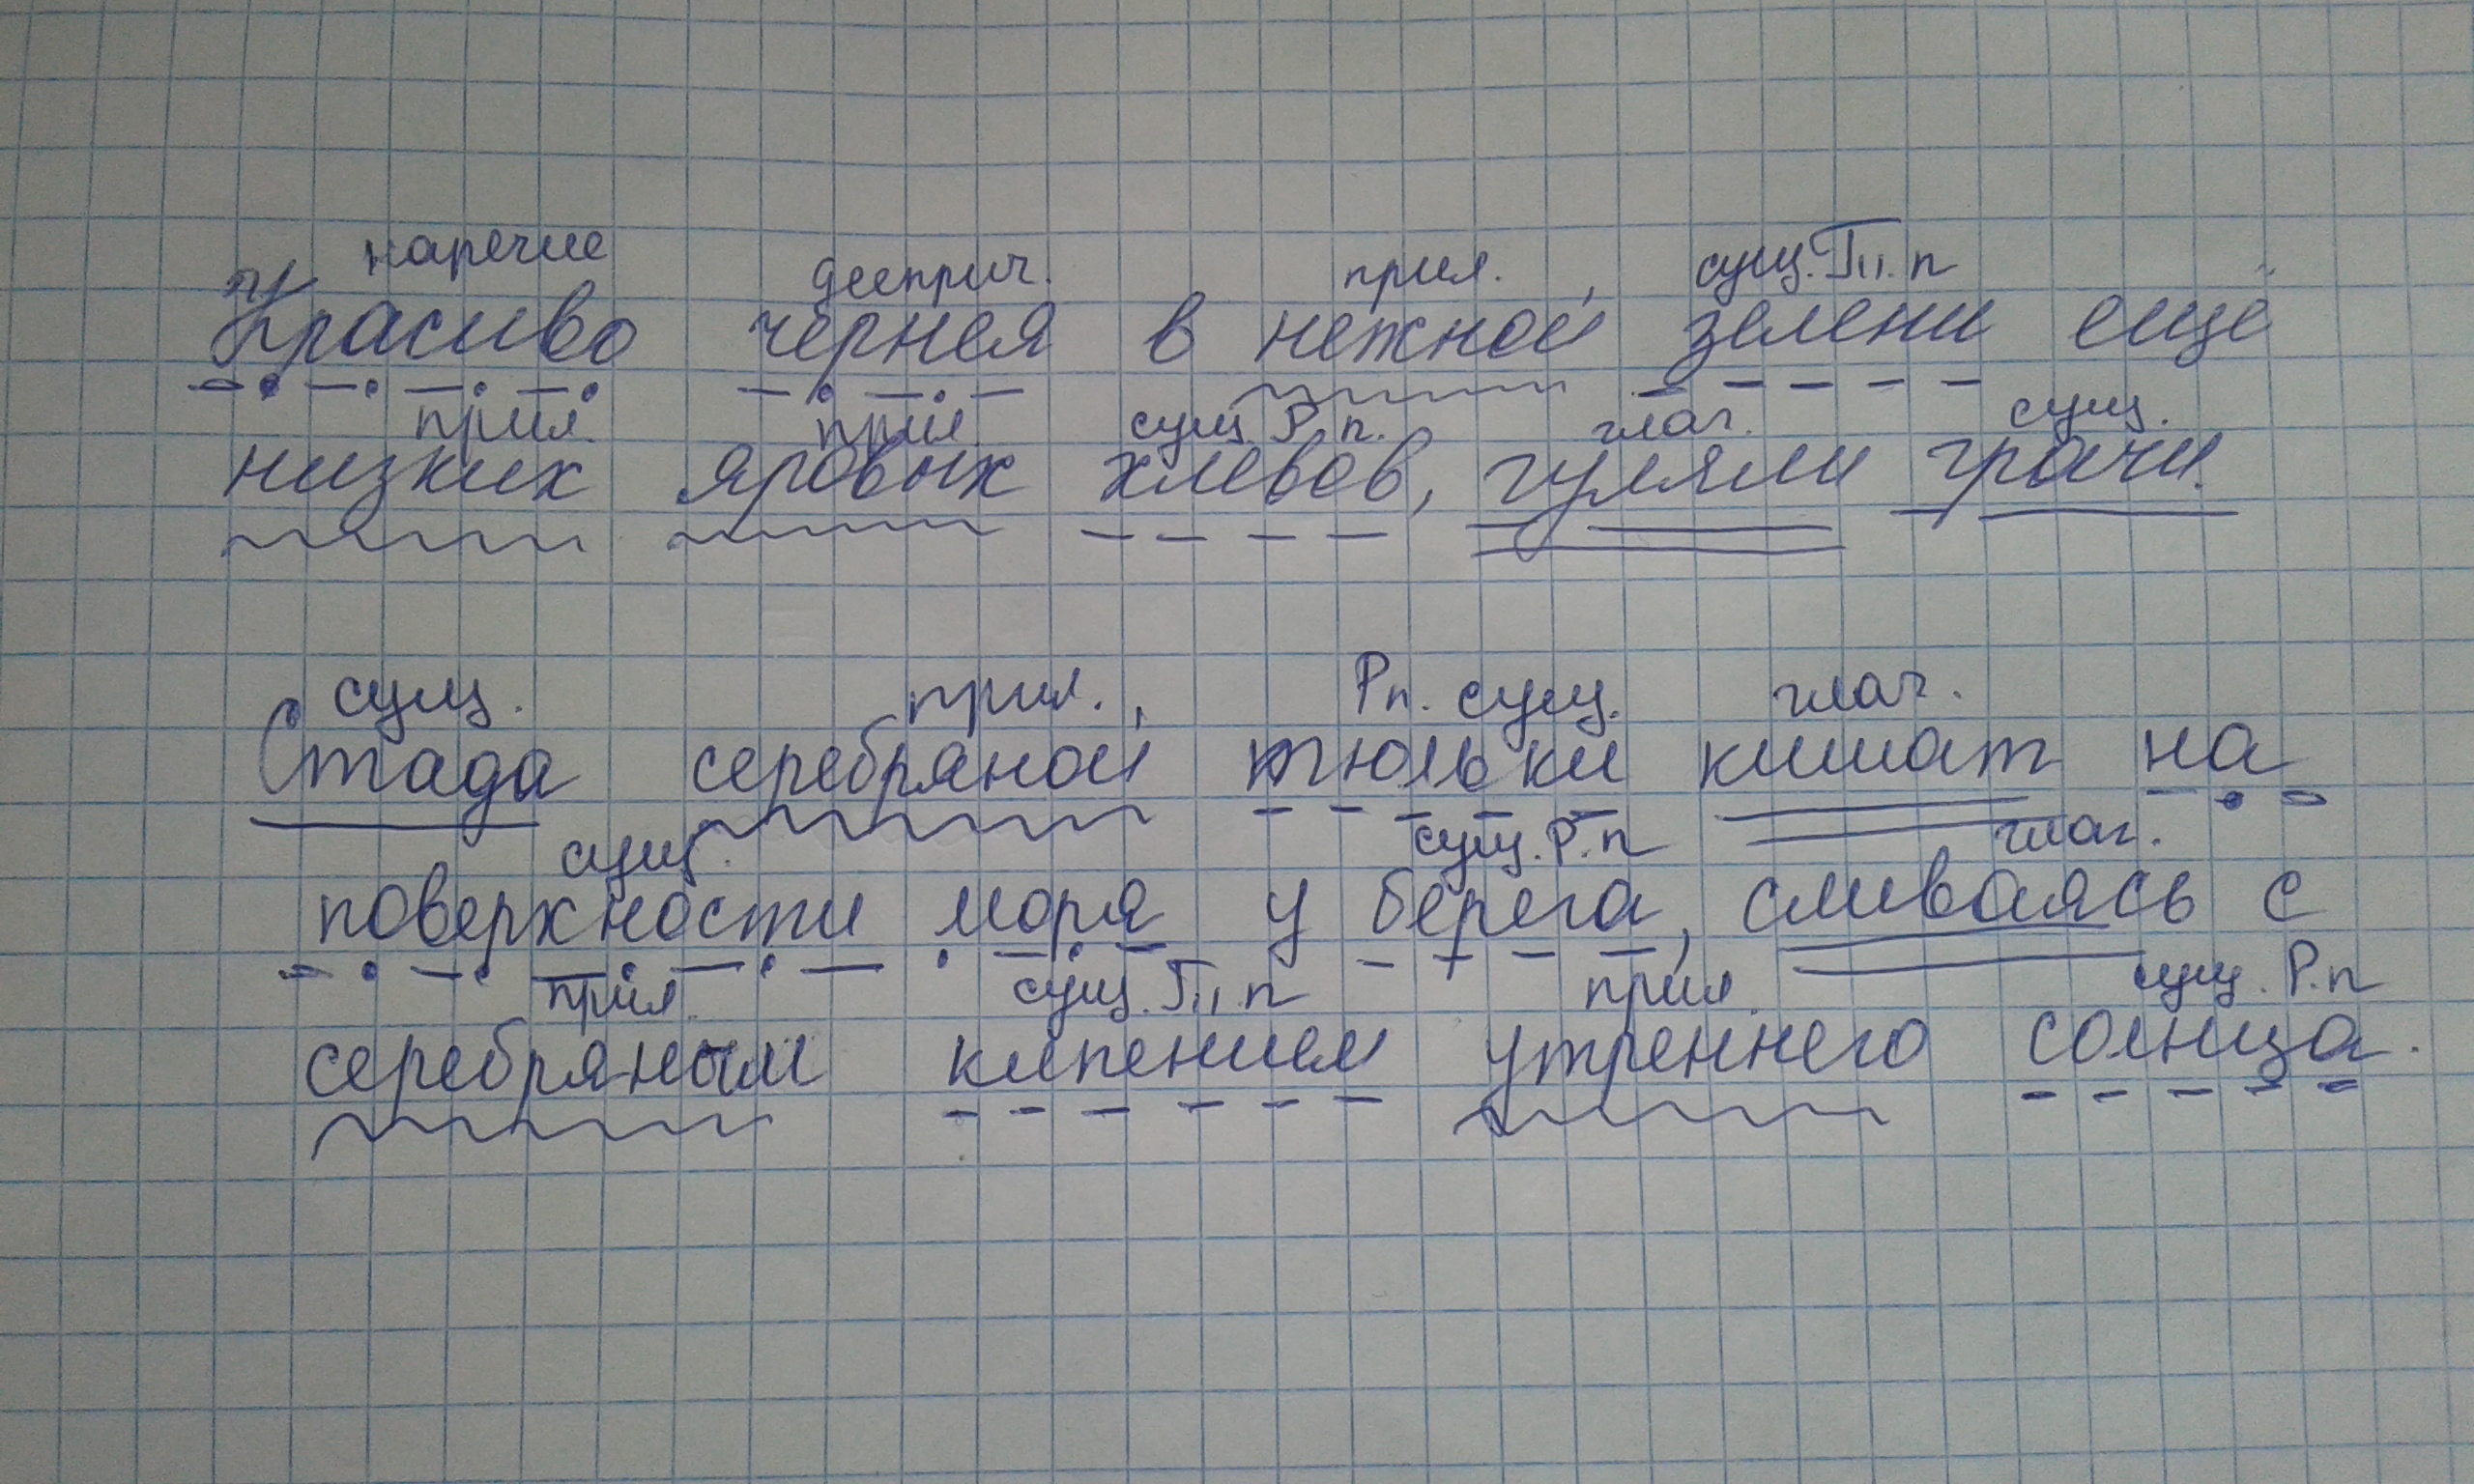 наречие дееприч. прил. сущ. Тп. п
Красиво чернея в нежной зелени ещё
прил. прил. сущ Р. п. глаг. сущ.
низких яровых хлевов, гуляли грачи.
сущ. прил. Рп. сущ. глаг.
Стада серебряной тюльки кишат на
сущ. сущ. Р. п глаг.
поверхности моря у берега, сливаясь с
прил. сущ. Тп. п прил. сущ. Р.п
серебряным кипением утреннего солнца.